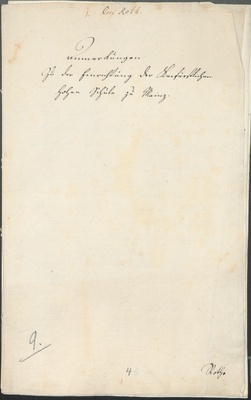 Anmerkungen
Zu der Einrichtung der Kurfürstlichen
hohen Schule zu Mainz.
9.
4